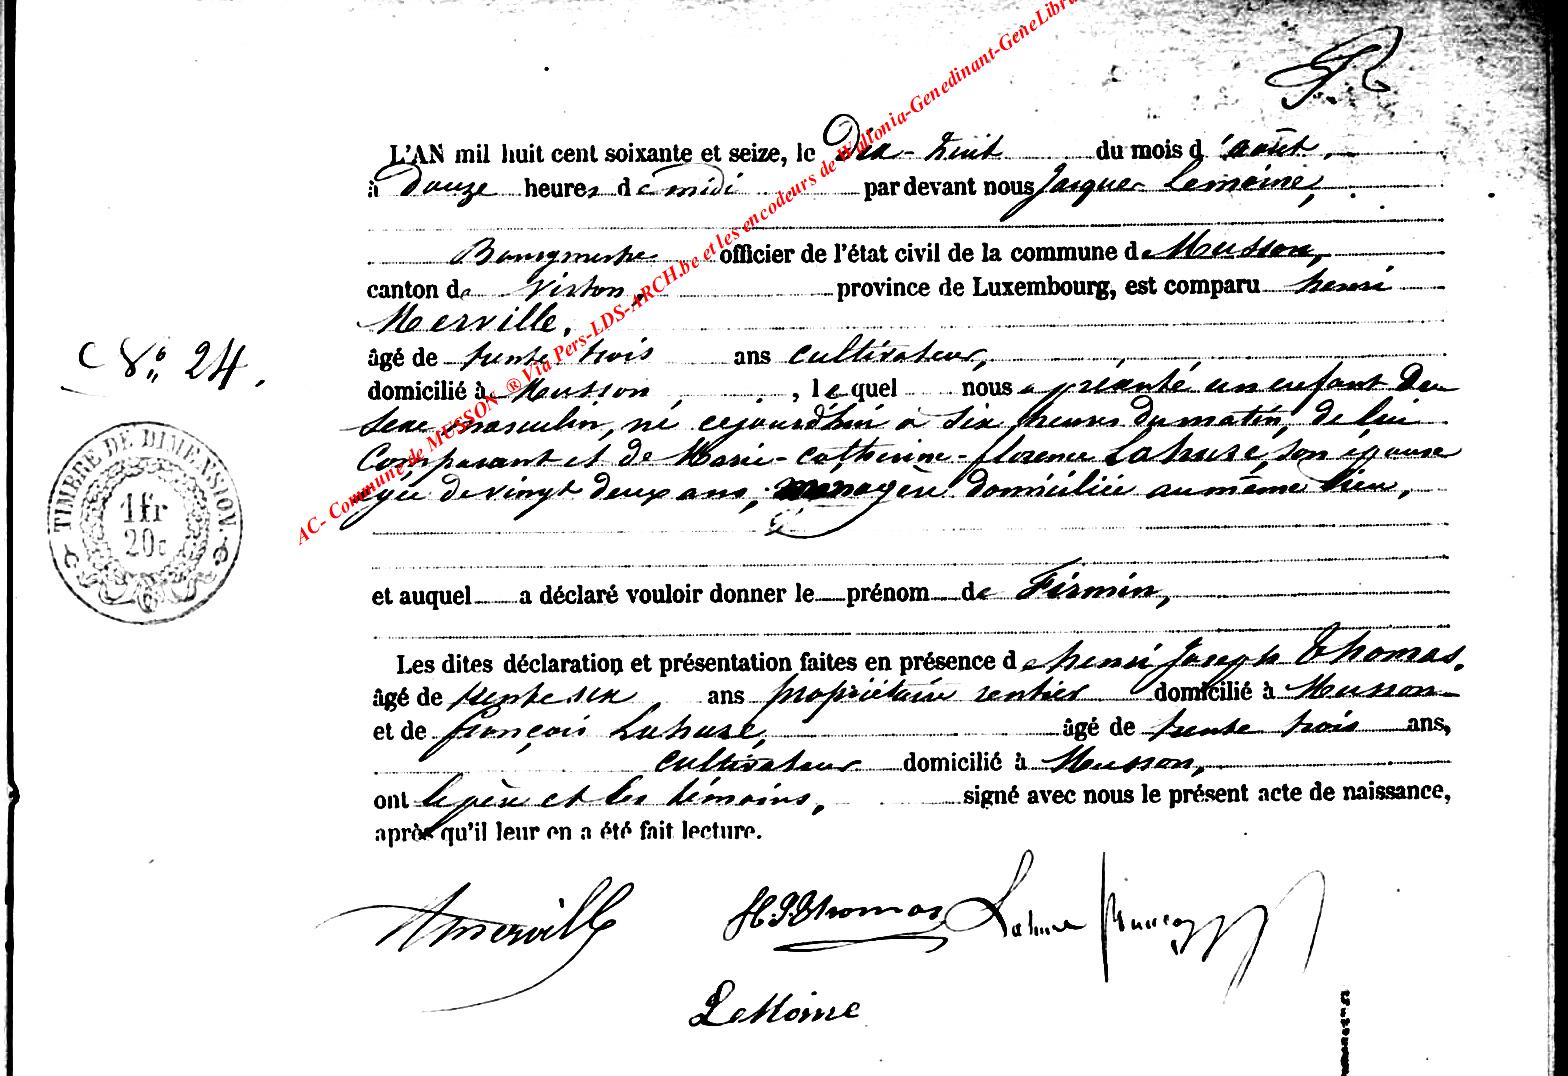 L'AN mil huit cent soixante et seize, le Dix-huit du mois d'août,
à Douze heures de midi par devant nous Jacques Lemoine,
Bourgmestre officier de l'état civil de la commune de Musson,
canton de Virton, province de Luxembourg, est comparu henri
Merville,
âgé de trente trois ans cultivateur,
N° 24.
domicilié à Musson, lequel nous a présenté un enfant Du
sexe masculin, né cejourd'hui à six heures du matin, de lui
Comparant et de Marie-Catherine-florence Lahure, son épouse
agée de vingt deux ans, ménagère domiciliée au même lieu,
TIMBRE DE DIMENSION.
1 fr
20c
et auquel a déclaré vouloir donner le prénom de Firmin,
Les dites déclaration et présentation faites en présence de henri Joseph Thomas,
âgé de trente six ans propriétaire rentier domicilié à Musson
et de françois Lahure, âgé de trente trois ans,
cultivateur domicilié à Musson,
ont le père et les témoins, signé avec nous le présent acte de naissance,
après qu'il leur en a été fait lecture.
Merville H J Thomas Lahure
LeMoine
AC- Commune de MUSSON ® Via Pers-LDS-ARCH.be et les encodeurs de Wallonia-Genedinant-GeneLibr